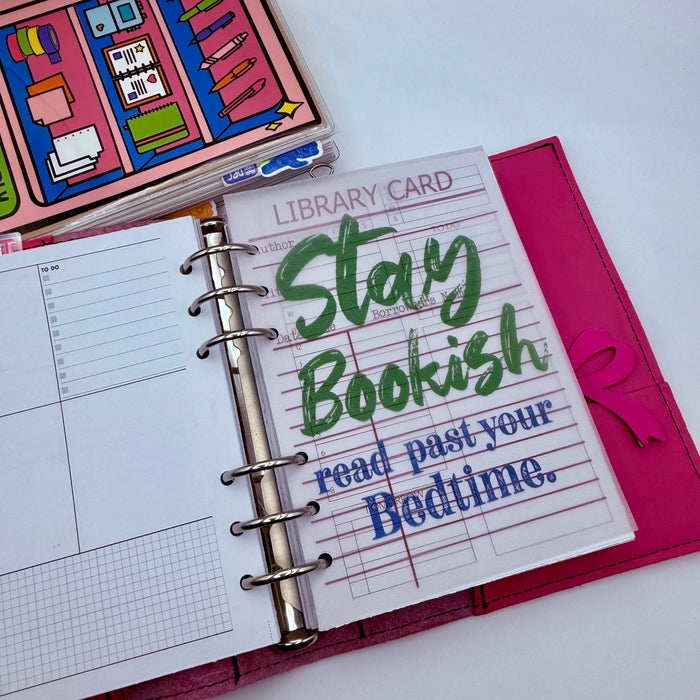 TO DO
LIBRARY CARD
Author
Stay
Date
Bookish
read past your
Bedtime.